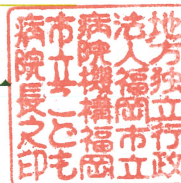 地方独立行政
法人福岡市立
病院機構福岡
市立こども
病院長之印